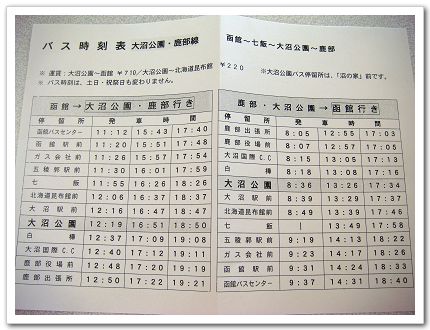 バス時刻表 大沼公園・鹿部線
※ 運賃：大沼公園～函館 ￥710／大沼公園～北海道昆布館
※ バス時刻は、土日・祝祭日も変わりません。
函館→大沼公園・鹿部行き
停留所 発車時間
函館バスセンター 11:12 15:43 17:40
函館駅前 11:20 15:51 17:48
ガス会社前 11:26 15:57 17:54
五稜郭駅前 11:30 16:01
七飯 11:55 16:26
北海道昆布館前 12:06 16:37
大沼駅前 12:16 16:47
大沼公園 12:19 16:51 18:50
白樺 12:37 17:09 19:08
大沼国際C.C 12:40 17:12 19:11
鹿部役場前 12:48 17:20 19:19
鹿部出張所 12:50 17:22 19:21
函館～七飯～大沼公園～鹿部
￥220 ※大沼公園バス停留所は、「沼の家」前です。
鹿部・大沼公園→函館行き
停留所 発車時間
鹿部出張所 8:05 12:55 17:03
鹿部役場前 8:07 12:57 17:05
大沼国際C.C 8:15 13:05 17:13
白樺 8:18 13:08 17:16
大沼公園 8:36 13:26 17:34
大沼駅前 8:39 13:29 17:37
北海道昆布館前 8:49 13:39 17:47
七飯 | 13:49 17:58
五稜郭駅前 9:19 14:13 18:22
ガス会社前 9:23 14:17 18:26
函館駅前 9:31 14:25 18:34
函館バスセンター 9:37 14:31 18:40